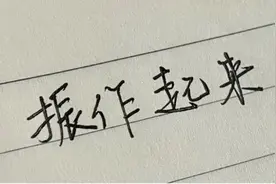 振作起来